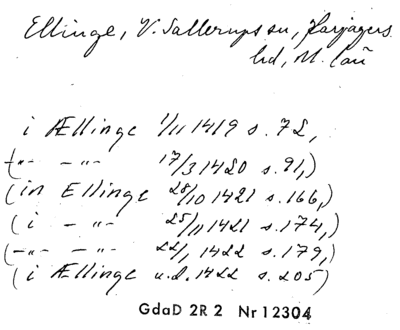 Ellinge, V. Sallerups sn, Harjagers
hd, M. Län
i Ællinge 1/11 1419 s. 72,
(-"- -"- 17/3 1420 s. 91,)
(in Ellinge 28/10 1421 s. 166,)
(i -"- 25/11 1421 s. 174,)
(-"- -"- 22/1 1422 s. 179,)
(i Ællinge u.d. 1422 s. 205)
GdaD 2R 2 Nr 12304